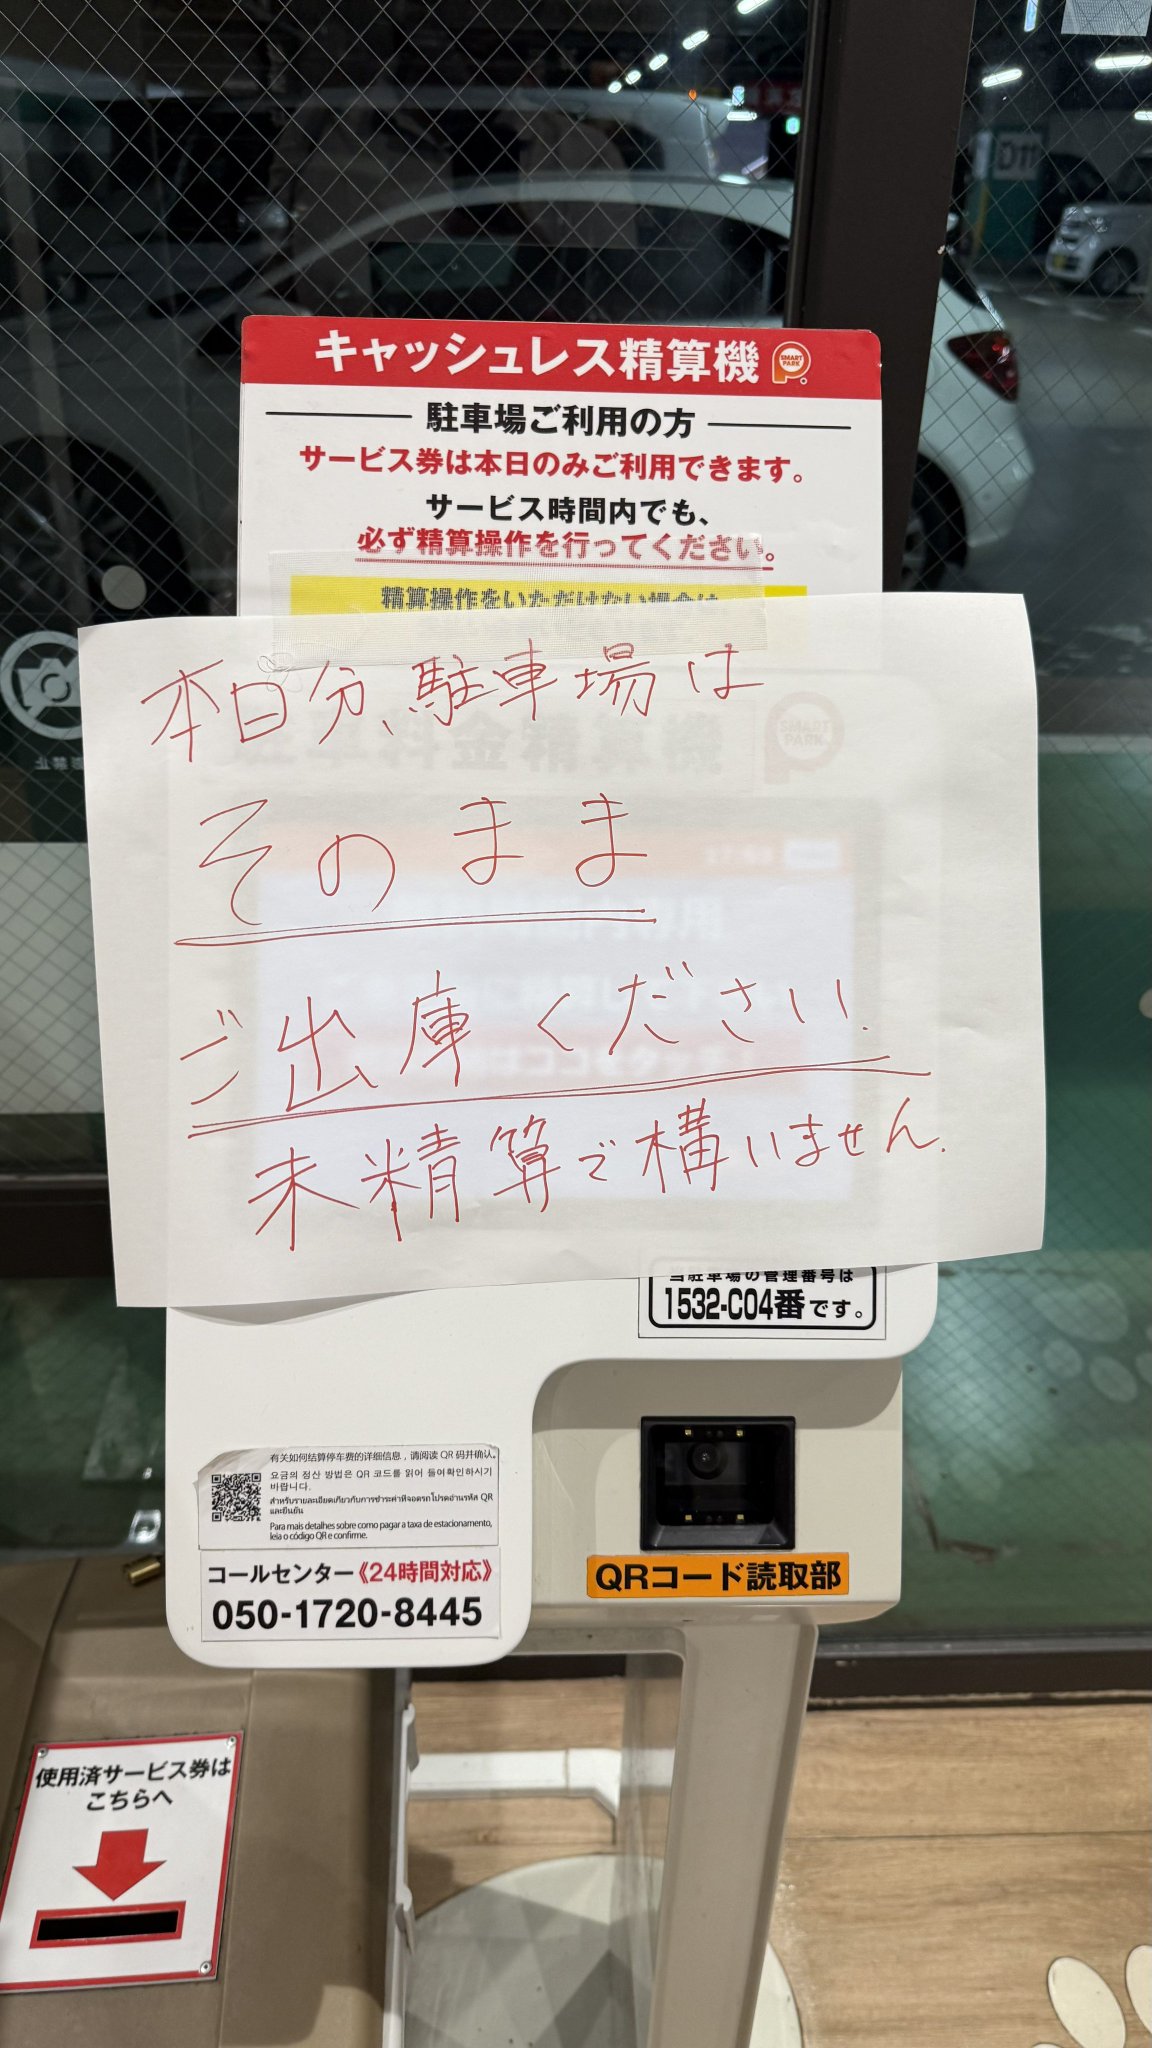 キャッシュレス精算機
SMART PARK
駐車場ご利用の方
サービス券は本日のみご利用できます。
サービス時間内でも、
必ず精算操作を行ってください。
精算操作をいただけない場合は
本日分、駐車場は
そのまま
ご出庫ください.
未精算で構いません.
駐車料金精算機
SMART PARK
当駐車場の管理番号は
1532-C04番です。
有关如何结算停车费的详细信息，请阅读 QR 码并确认。
요금의 정산 방법은 QR 코드를 읽어 들여확인하시기
바랍니다.
สำหรับรายละเอียดเกี่ยวกับการชำระค่าที่จอดรถโปรดอ่านรหัส QR
และยืนยัน
Para mais detalhes sobre como pagar a taxa de estacionamento,
leia o código QR e confirme.
コールセンター《24時間対応》
050-1720-8445
QRコード読取部
使用済サービス券は
こちらへ
D11